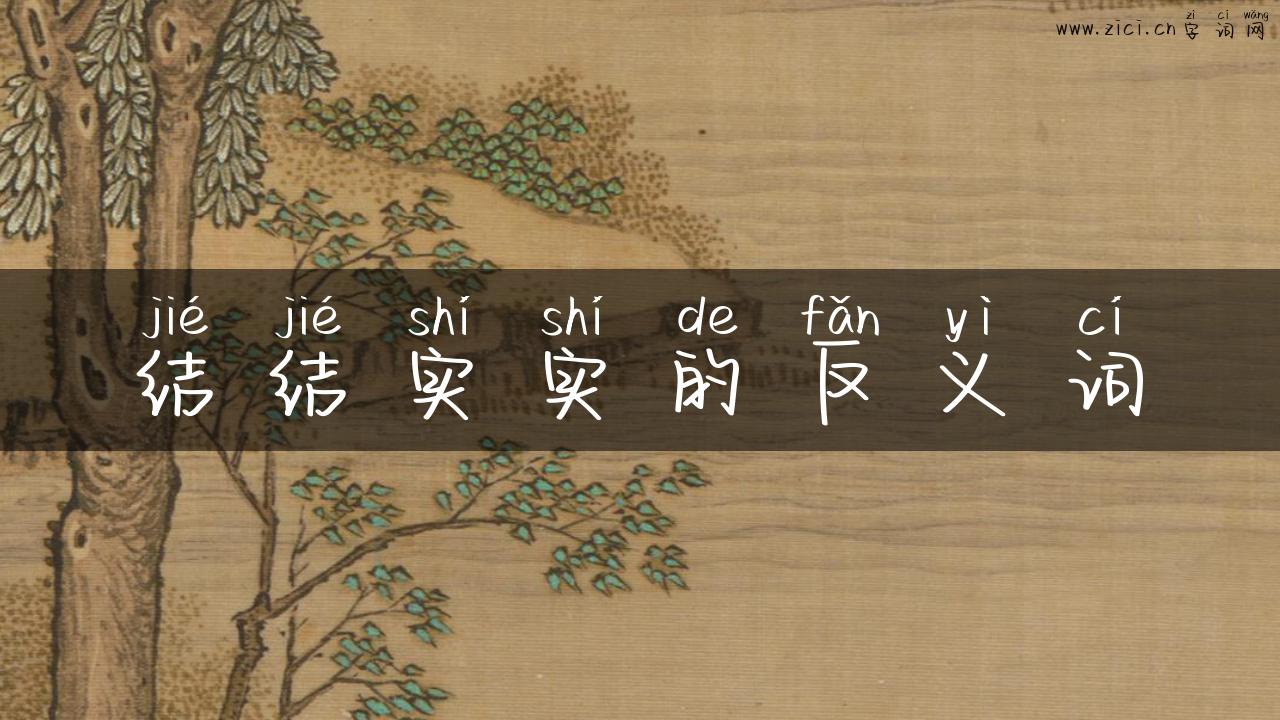 zì cí wǎng
www.zici.cn 字词网
jié jié shí shí de fǎn yì cí
结结实实的反义词